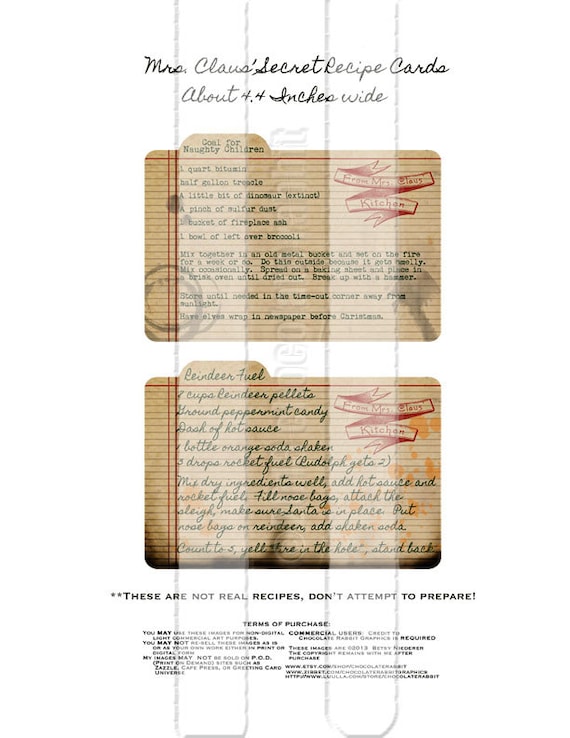 Mrs. Claus' Secret Recipe Cards
About 4.4 Inches wide
Coal for
Naughty Children
1 quart bitumin
half gallon treacle
A little bit of dinosaur (extinct)
A pinch of sulfur dust
1 bucket of fireplace ash
1 bowl of left over broccoli
Mix together in an old metal bucket and set on the fire
for a week or so. Do this outside because it gets smelly.
Mix occasionally. Spread on a baking sheet and place in
a brisk oven until dried out. Break up with a hammer.
Store until needed in the time-out corner away from
sunlight.
Have elves wrap in newspaper before Christmas.
From Mrs. Claus
Kitchen
Reindeer Fuel
8 cups Reindeer pellets
Ground peppermint candy
Dash of hot sauce
1 bottle orange soda, shaken
3 drops rocket fuel (Rudolph gets 2)
Mix dry ingredients well, add hot sauce and
rocket fuel. Fill nose bags, attach the
sleigh, make sure Santa is in place. Put
nose bags on reindeer, add shaken soda.
Count to 3, yell "Fire in the hole", stand back.
From Mrs. Claus
Kitchen
**These are not real recipes, don't attempt to prepare!
TERMS OF PURCHASE:
You MAY use these images for non-digital
light commercial art purposes.
You MAY NOT re-sell these images as is
or as your own work either in print or
digital form
My images MAY NOT be sold on P.O.D.
(Print on Demand) sites such as
Zazzle, Cafe Press, or Greeting Card
Universe
COMMERCIAL USERS: Credit to
Chocolate Rabbit Graphics is REQUIRED
These images are ©2013 Betsy Niederer
The copyright remains with me after
purchase
www.etsy.com/shop/chocolaterabbit
www.zibbet.com/chocolaterabbitgraphics
http://www.luulla.com/store/chocolaterabbit